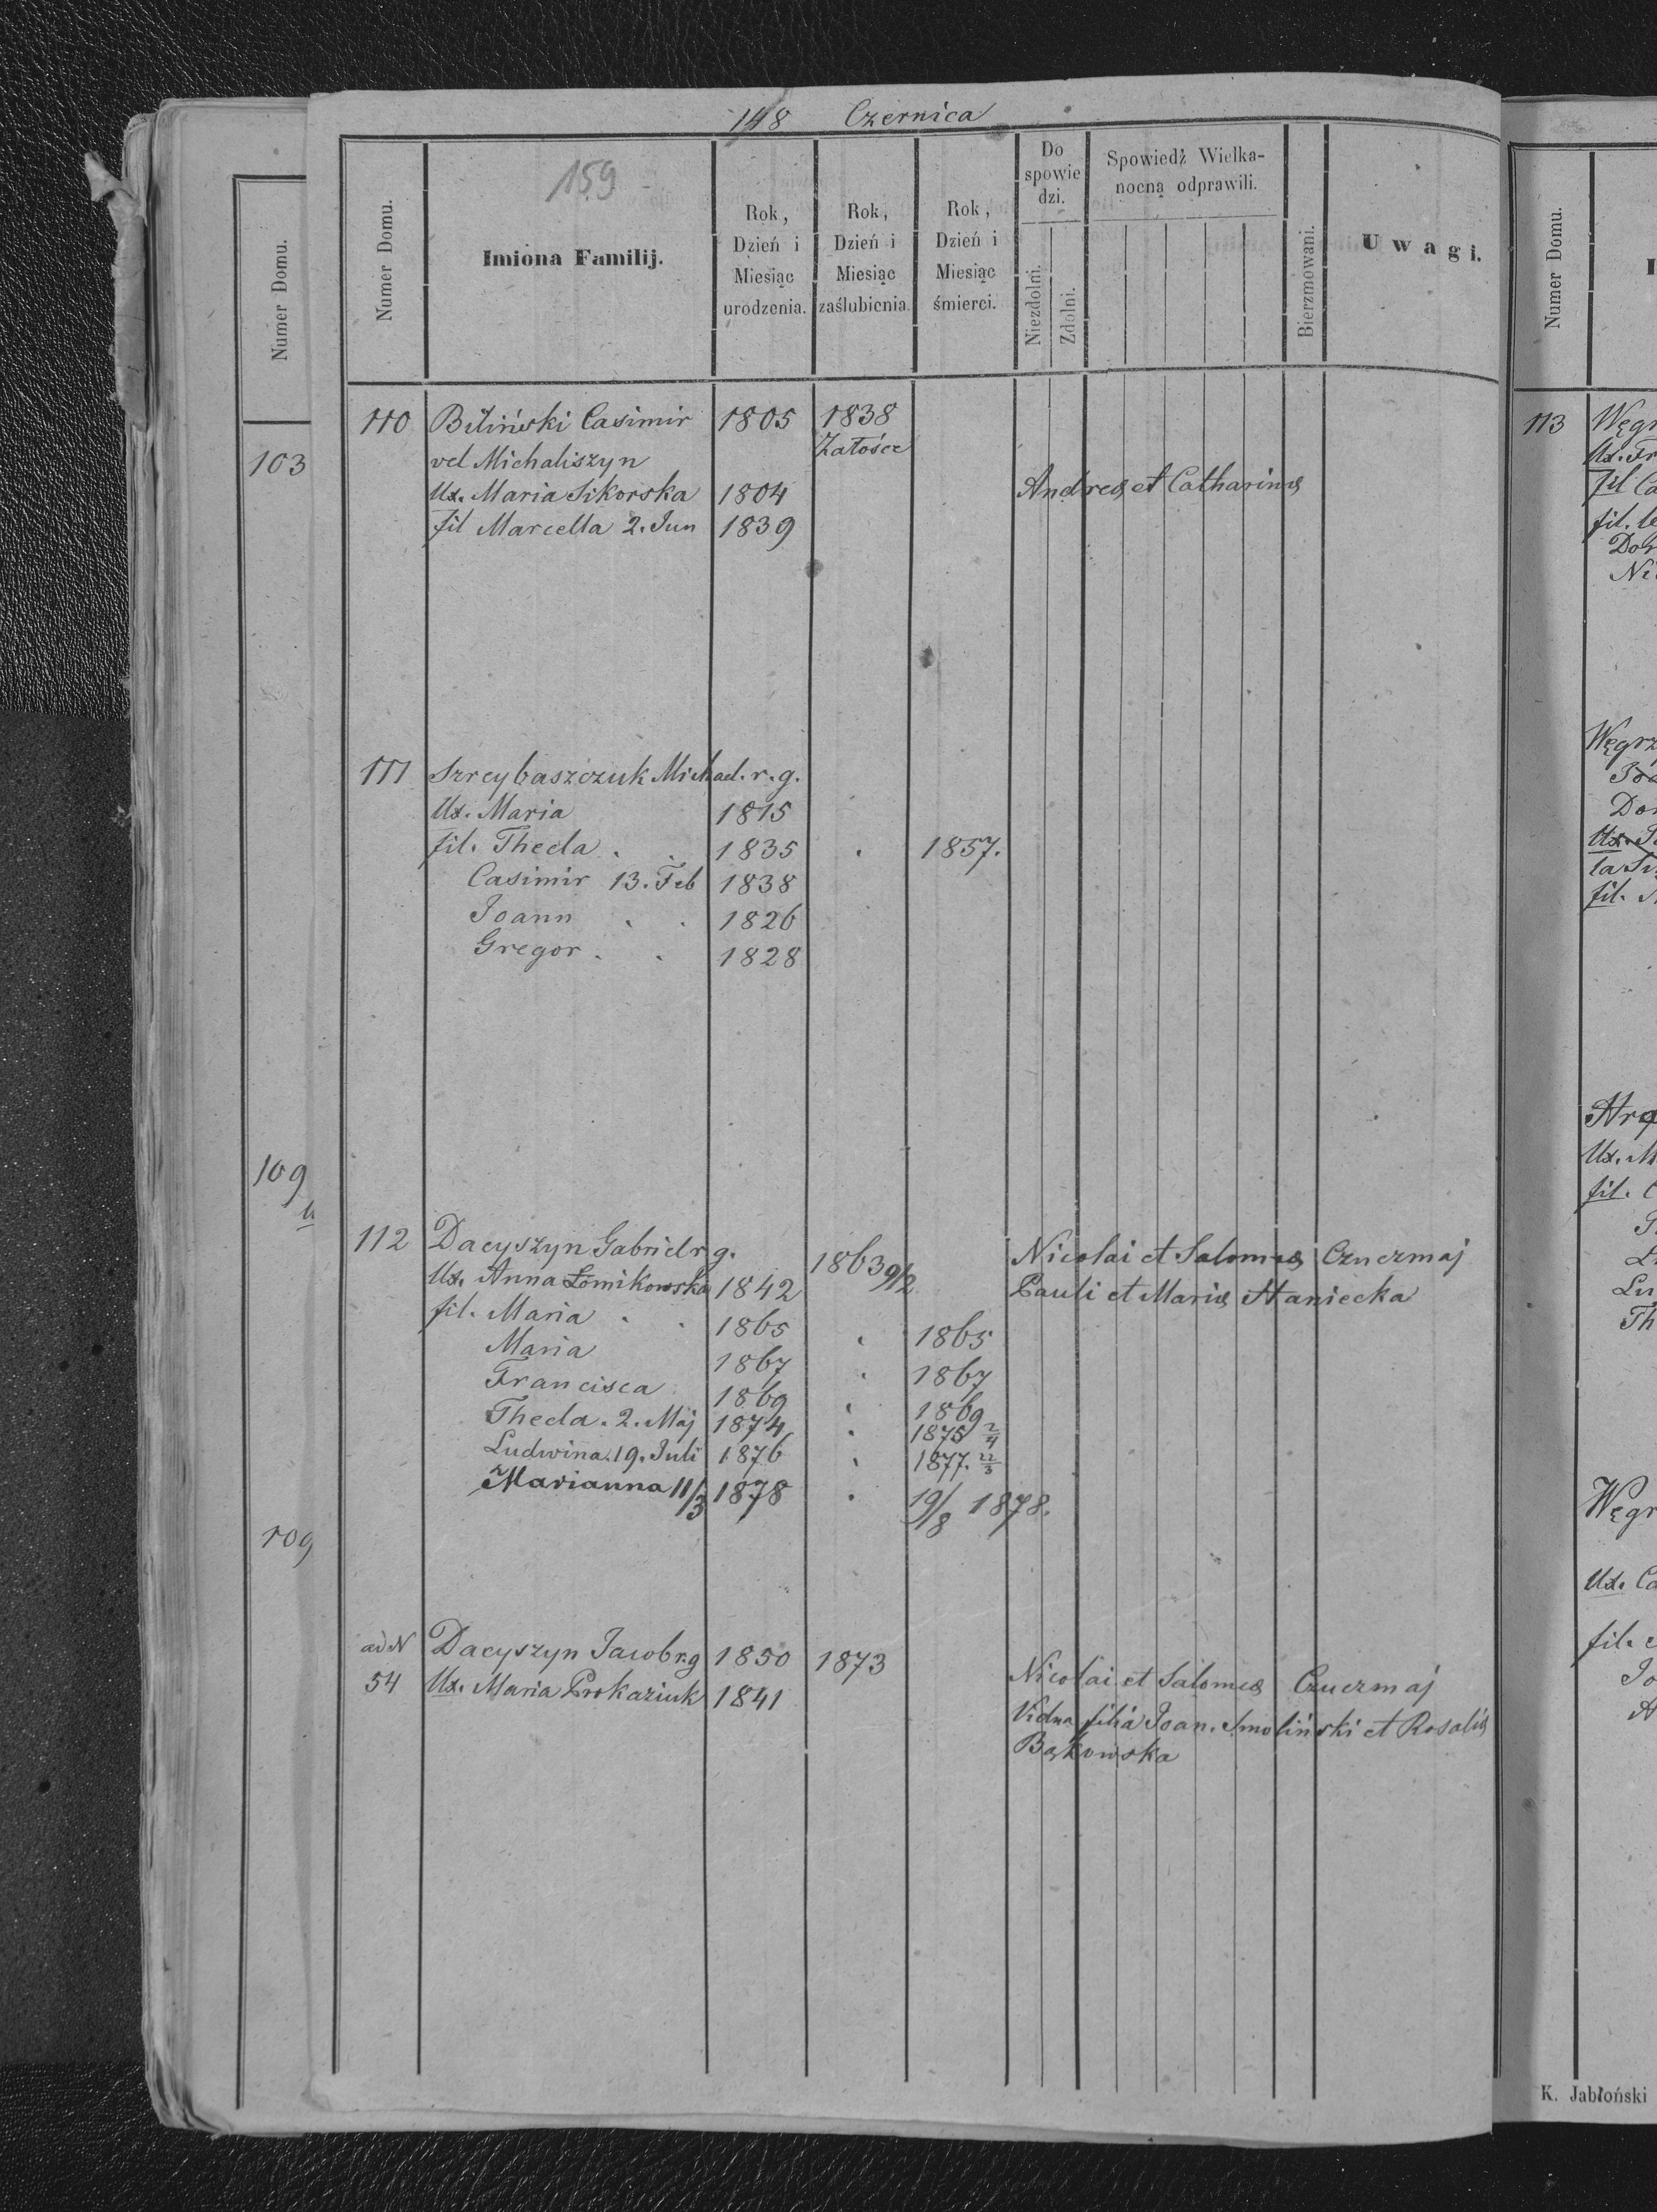 148 Czernica
159
Numer Domu.
Imiona Familij.
Rok, Dzień i Miesiąc urodzenia.
Rok, Dzień i Miesiąc zaślubienia.
Rok, Dzień i Miesiąc śmierci.
Do spowiedzi.
Niezdolni.
Zdolni.
Spowiedź Wielkanocną odprawili.
Bierzmowani.
Uwagi.
110 Biliński Casimir 1805 1838
vel Michaliszyn Załośce
Ux. Maria Sikorska 1804 Andreæ et Catharinæ
fil Marcella 2. Jun 1839
111 Szreybaszczuk Michael. r. g.
Ux. Maria 1815
fil. Thecla . . 1835 . 1857.
Casimir 13. Feb 1838
Joann . . 1826
Gregor . . 1828
112 Dacyszyn Gabriel r. g. 1863 9/2 Nicolai et Salomeæ Czuczmaj
Ux. Anna Łomikowska 1842 Pauli et Mariæ Haniecka
fil. Maria . . 1865 . 1865
Maria 1867 . 1867
Francisca 1869 . 1869
Thecla. 2. Maj 1874 . 1875 2/4
Ludwina. 19. Juli 1876 . 1877. 22/3
Marianna 11/3 1878 . 19/8 1878.
ad N Dacyszyn Jacob r. g 1850 1873 Nicolai et Salomeæ Czuczmaj
54 Ux. Maria Prokaziuk 1841
Vidua filia Joan. Smoliński et Rosaliæ
Bąkowska
Numer Domu.
103
109
109
Numer Domu.
113 Węgr
Ux. Fr
fil Ca
fil.
Węgrz
Ux. M
fil. C
Th
Węgr
Ux. Ca
fil.
K. Jabłoński